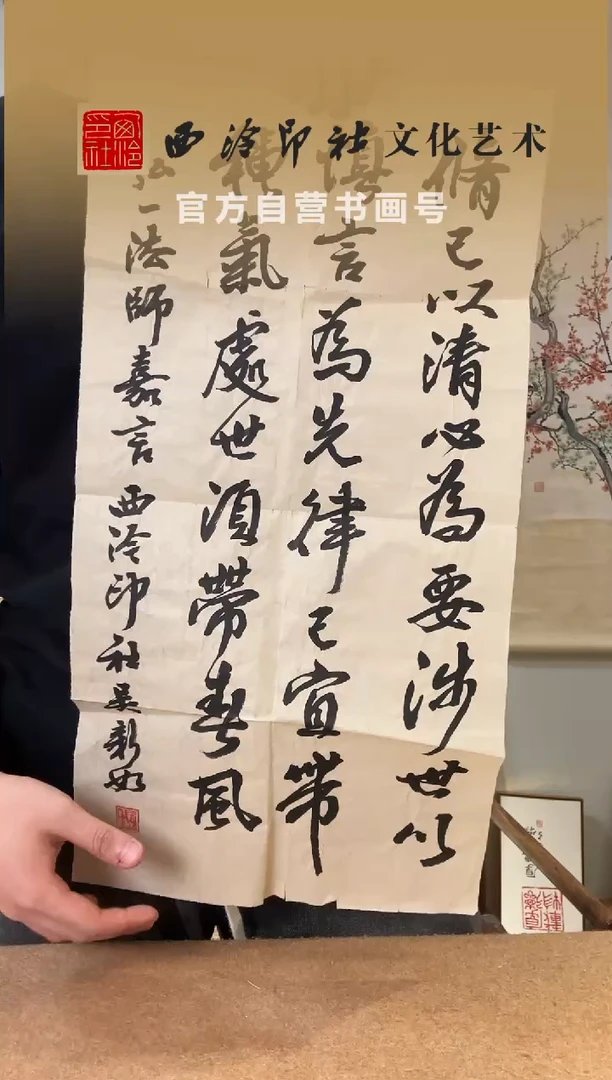 西泠印社
西泠印社文化艺术
官方自营书画号
脩己以清心為要涉世以
慎言為先律己宜帶
氣處世須帶春風
弘一法師嘉言西泠印社吳新如